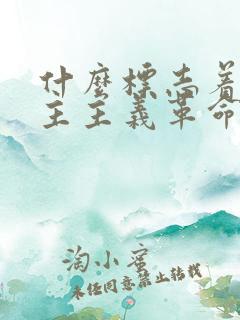 什麼標志着
主主義革命
淘小蜜
未经同意禁止转载